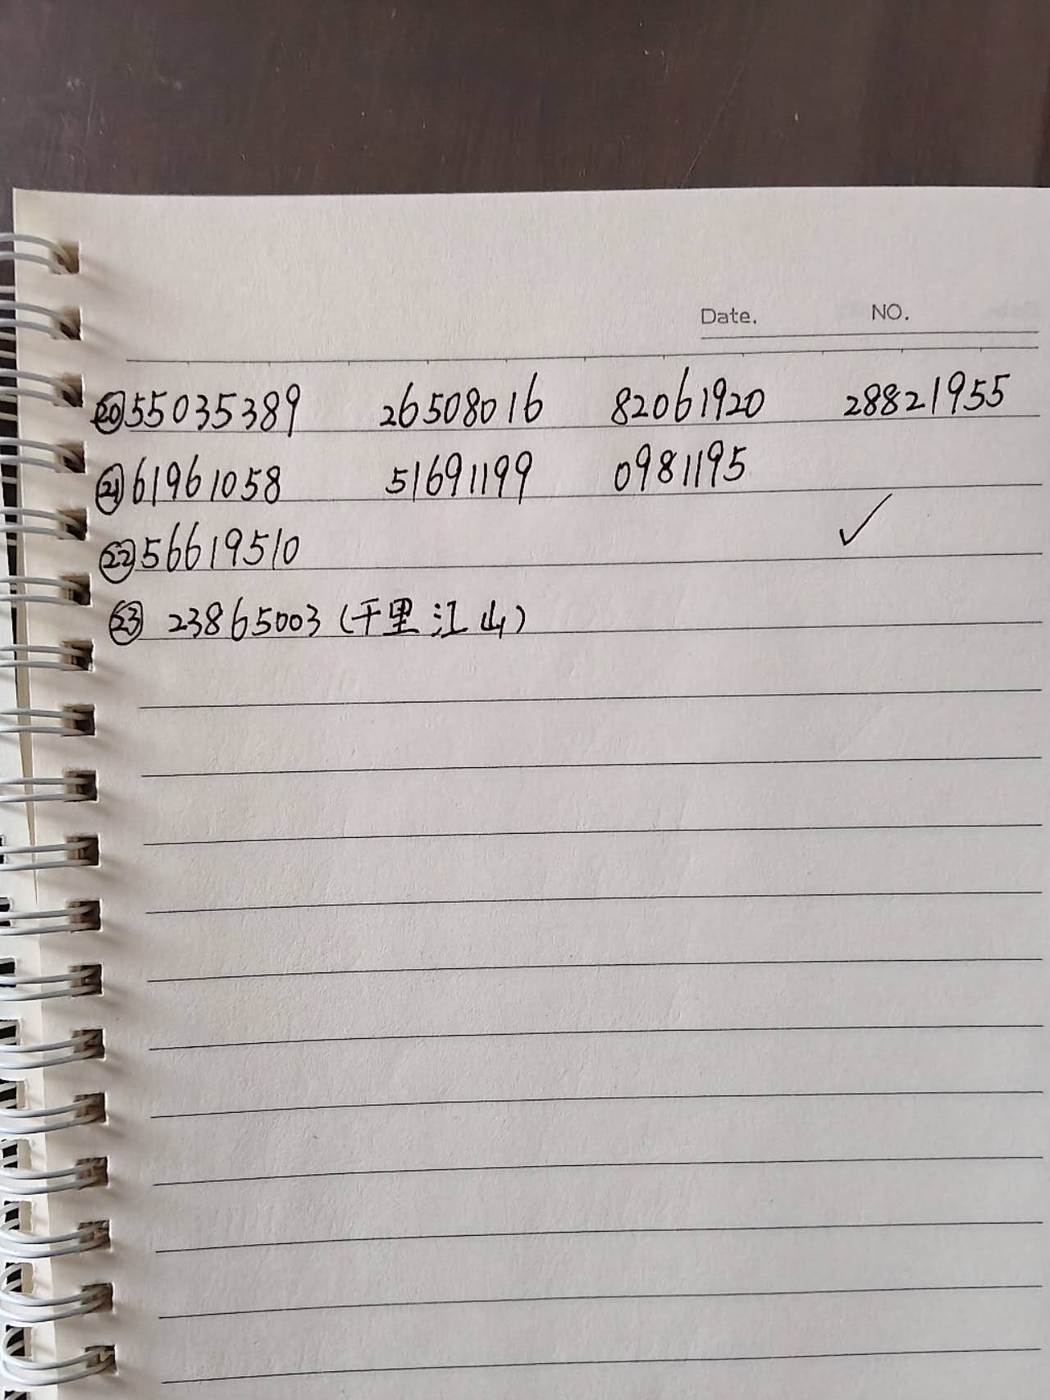 Date. NO.
⑳55035389 26508016 82061920 28821955
㉑61961058 51691199 0981195
㉒56619510 ✓
㉓ 23865003 (千里江山)